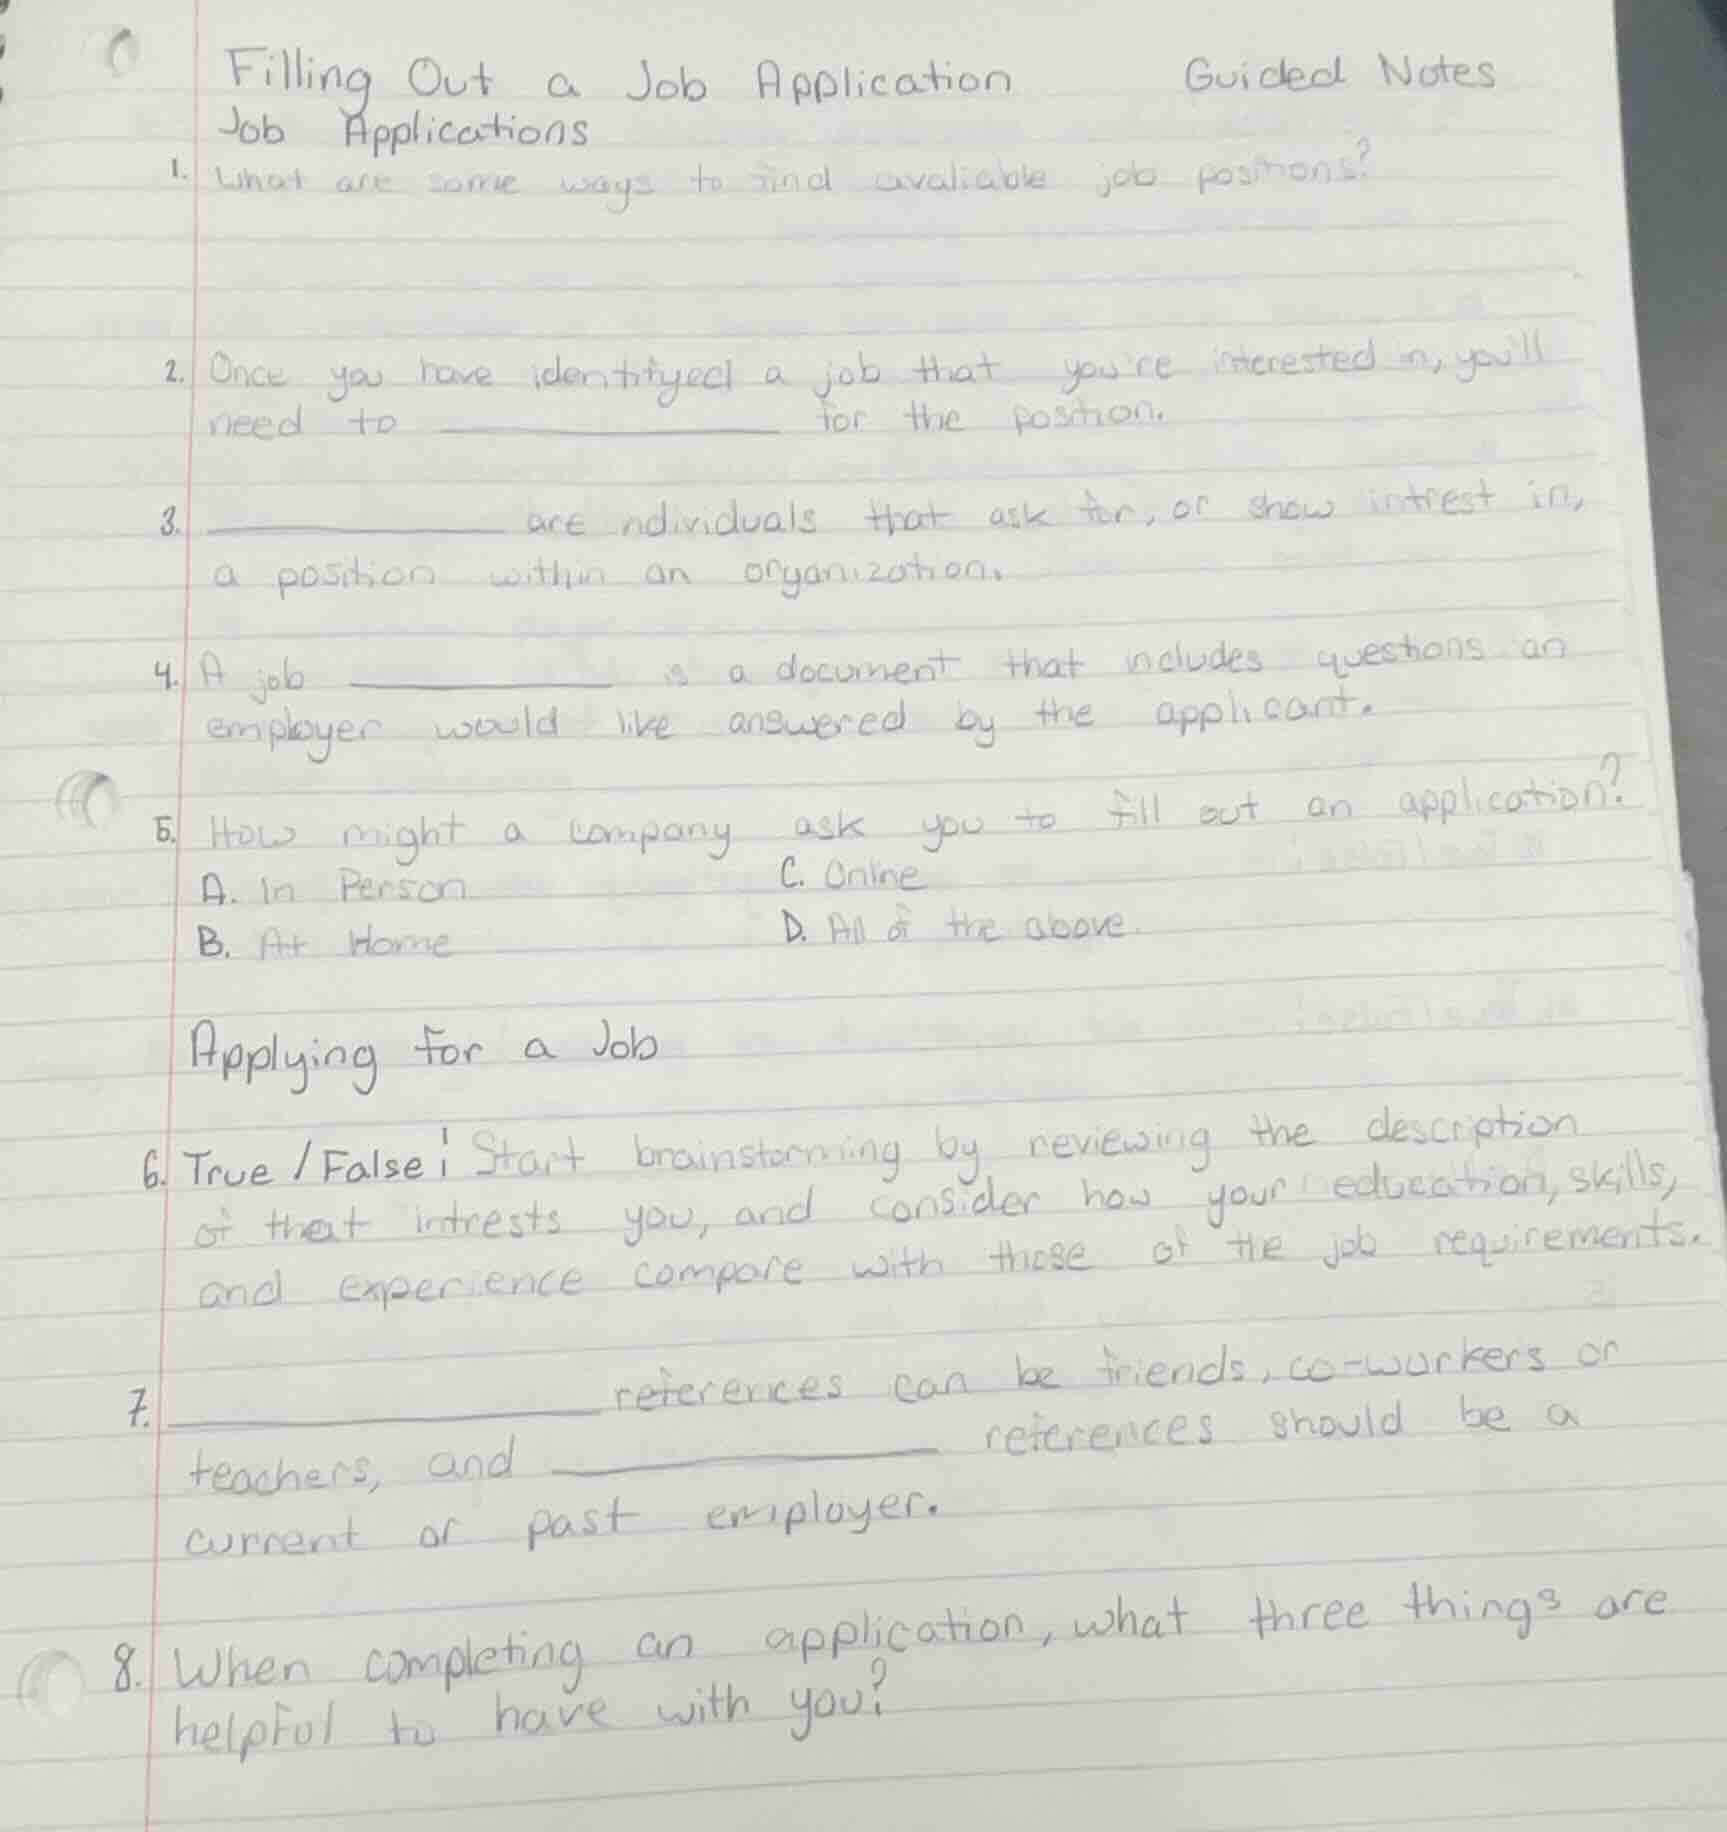 Filling Out a Job Application Guided Notes
Job Applications
1. What are some ways to find avaliable job positions?
2. Once you have identityed a job that you're interested in, you'll
need to __________ for the position.
3. __________ are ndividuals that ask for, or show intrest in,
a position within an organization.
4. A job __________ is a document that includes questions an
employer would like answered by the applicant.
5. How might a company ask you to fill out an application?
A. In Person C. Online
B. At Home D. All of the above.
Applying for a Job
6. True / False: Start brainstorming by reviewing the description
of that intrests you, and consider how your education, skills,
and experience compare with those of the job requirements.
7. __________ references can be friends, co-workers or
teachers, and __________ references should be a
current or past employer.
8. When completing an application, what three things are
helpful to have with you?